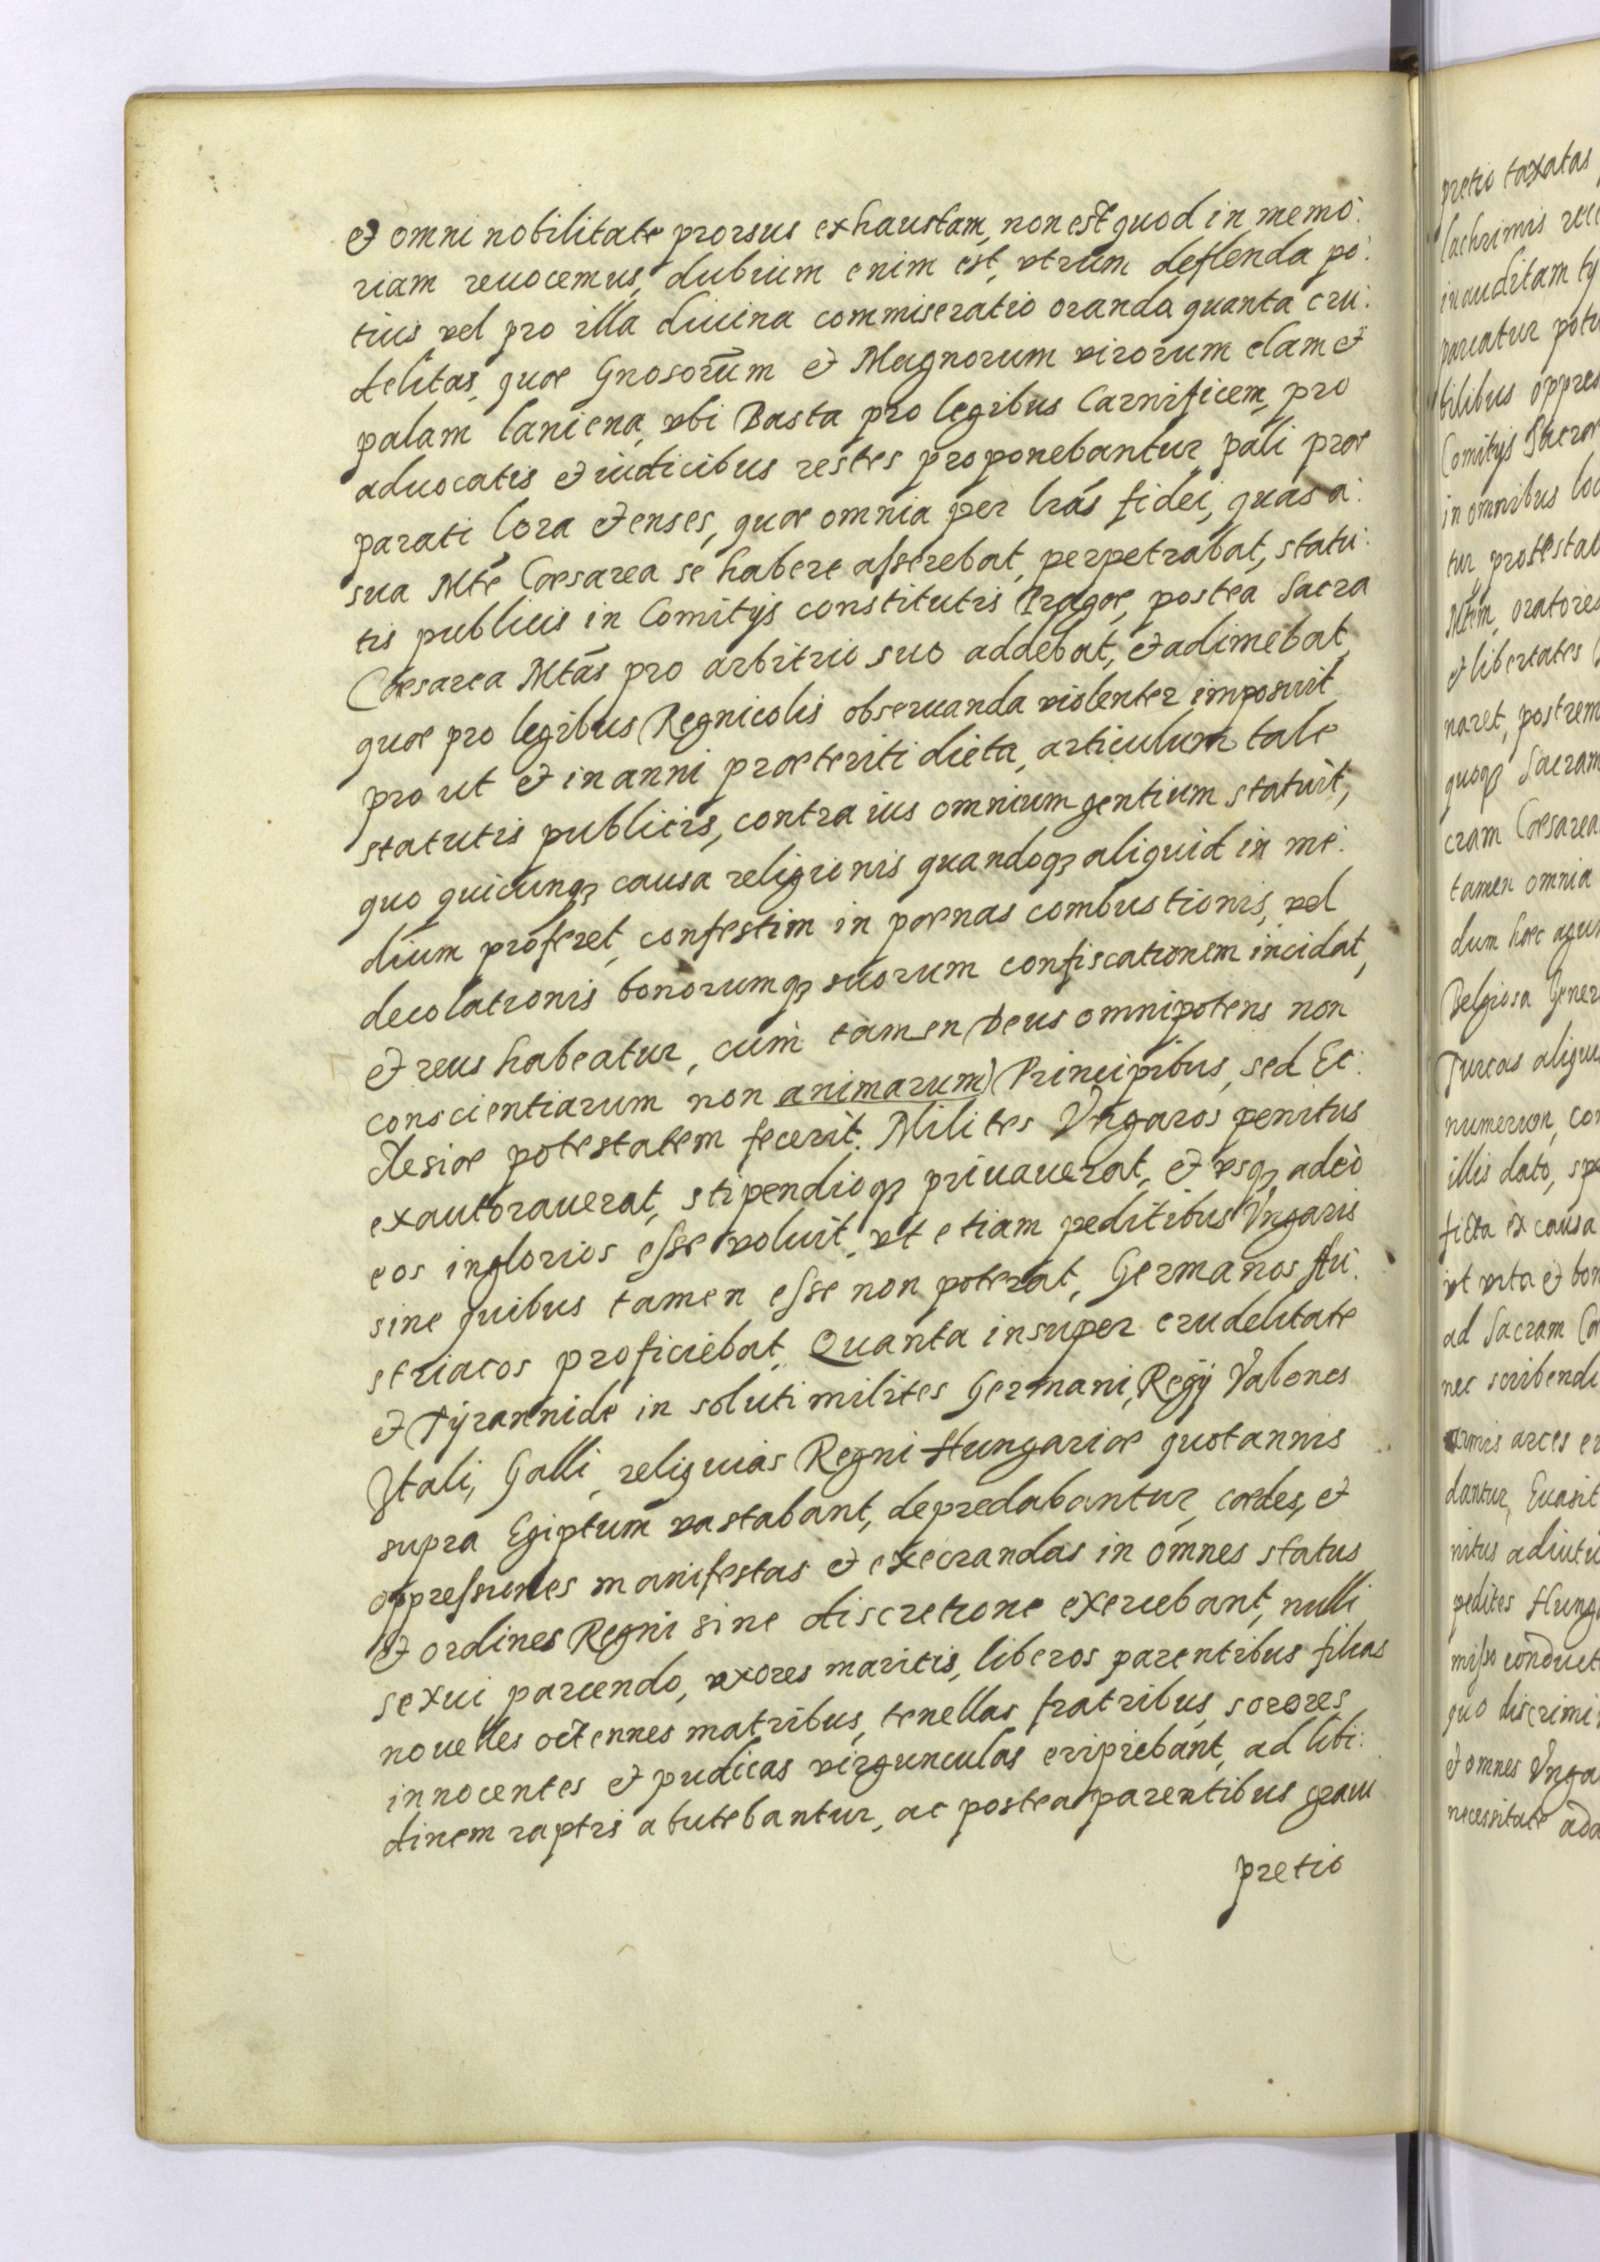 et omni nobilitate prorsus exhaustam, non est quod in memo:
riam reuocemus, dubium enim est, vtrum deflenda po:
tius vel pro illa diuina commiseratio oranda quanta cru:
delitas, quæ Gnosorum̄ et Magnorum virorum clam et
palam laniena, vbi Basta pro legibus Carnificem, pro
aduocatis et iudicibus restes proponebantur, pali præ
parati lora et enses, quæ omnia per lrás fidei, quas a:
sua Mte Cæsarea se habere asserebat, perpetrabat, statu:
tis publicis in Comitijs constitutis Pragæ, postea Sacra
Cæsarea Mtás pro arbitrio suo addebat, et adimebat,
quæ pro legibus Regnicolis obseruanda violenter imposuit
pro ut et in anni præteriti dieta, articulum tale
statutis publicis, contra ius omnium gentium statuit,
quo quicunqꝫ causa religionis quandoqꝫ aliquid in me:
dium proferet, confestim in pœnas combustionis, vel
decolationis bonorumqꝫ suorum confiscationem incidat,
et reus habeatur, cum tamen Deus omnipotens non
conscientiarum non animarum) Principibus, sed Ec:
clesiæ potestatem fecerit. Milites Vngaros penitus
exautorauerat, stipendioqꝫ priuauerat, et vsqꝫ adeò
eos inglorios esse voluit, vt etiam peditibus Vngaris
sine quibus tamen esse non poterat, Germanos Au:
striacos proficiebat, Quanta insuper crudelitate
et Tÿrannide in soluti milites Germani, Regij Valones
Itali, Galli, reliquias Regni Hungariæ quotannis
supra Egiptum vastabant, depredabantur, cædes, et
oppressiones manifestas et execrandas in omnes status
et ordines Regni sine discretione exercebant, nulli
sexui parcendo, vxores maritis, liberos parentibus filias
nouelles octennes matribus, tenellas fratribus, sorores
innocentes et pudicas virgunculas eripiebant, ad libi:
dinem raptis abutebantur, ac postea parentibus graui
pretio
pretio taxatas
lachrimis
inauditam ty
pareatur potu
bilibus oppres
Comitijs Sacræ
in omnibus loc
tur protestat
Mtem, oratores
et libertates
naret, postrem
quoqꝫ Sacram
cram Cæsarea
tamen omnia
dum hæc agun
Belgiosa Gener
Turcas aliqu
numerum, con
illis dato, spe
ficta ex causa
vt vita et bon
ad Sacram Cæ
nec scribendi
armis arces
dantur, Euasit
nitus adiutu
pedites Hung
misso conduct
quo discrimi
et omnes Vnga
necessitate ada